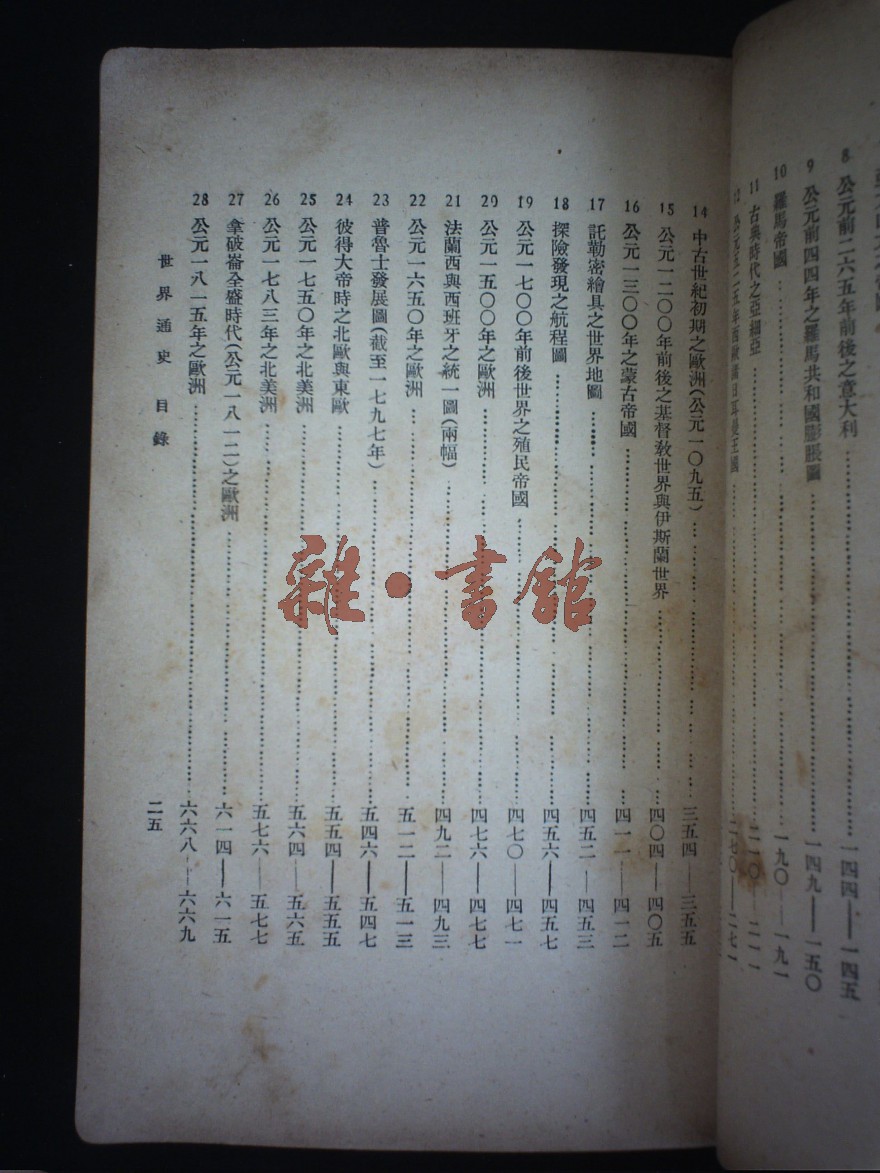 8 公元前二六五年前後之意大利……一四四——一四五
9 公元前四四年之羅馬共和國膨脹圖……一四九——一五〇
10 羅馬帝國……一九〇——一九一
11 古典時代之亞細亞……二一〇——二一一
12 公元五二五年西歐諸日耳曼王國……二七〇——二七一
14 中古世紀初期之歐洲(公元一〇九五)……三五四——三五五
15 公元一二〇〇年前後之基督教世界與伊斯蘭世界……四〇四——四〇五
16 公元一三〇〇年之蒙古帝國……四一一——四一二
17 託勒密繪具之世界地圖……四五二——四五三
18 探險發現之航程圖……四五六——四五七
19 公元一七〇〇年前後世界之殖民帝國……四七〇——四七一
20 公元一五〇〇年之歐洲……四七六——四七七
21 法蘭西與西班牙之統一圖(兩幅)……四九二——四九三
22 公元一六五〇年之歐洲……五一二——五一三
23 普魯士發展圖(截至一七九七年)……五四六——五四七
24 彼得大帝時之北歐與東歐……五五四——五五五
25 公元一七五〇年之北美洲……五六四——五六五
26 公元一七八三年之北美洲……五七六——五七七
27 拿破崙全盛時代(公元一八一二)之歐洲……六一四——六一五
28 公元一八一五年之歐洲……六六八——六六九
世界通史 目錄
二五
雜·書館